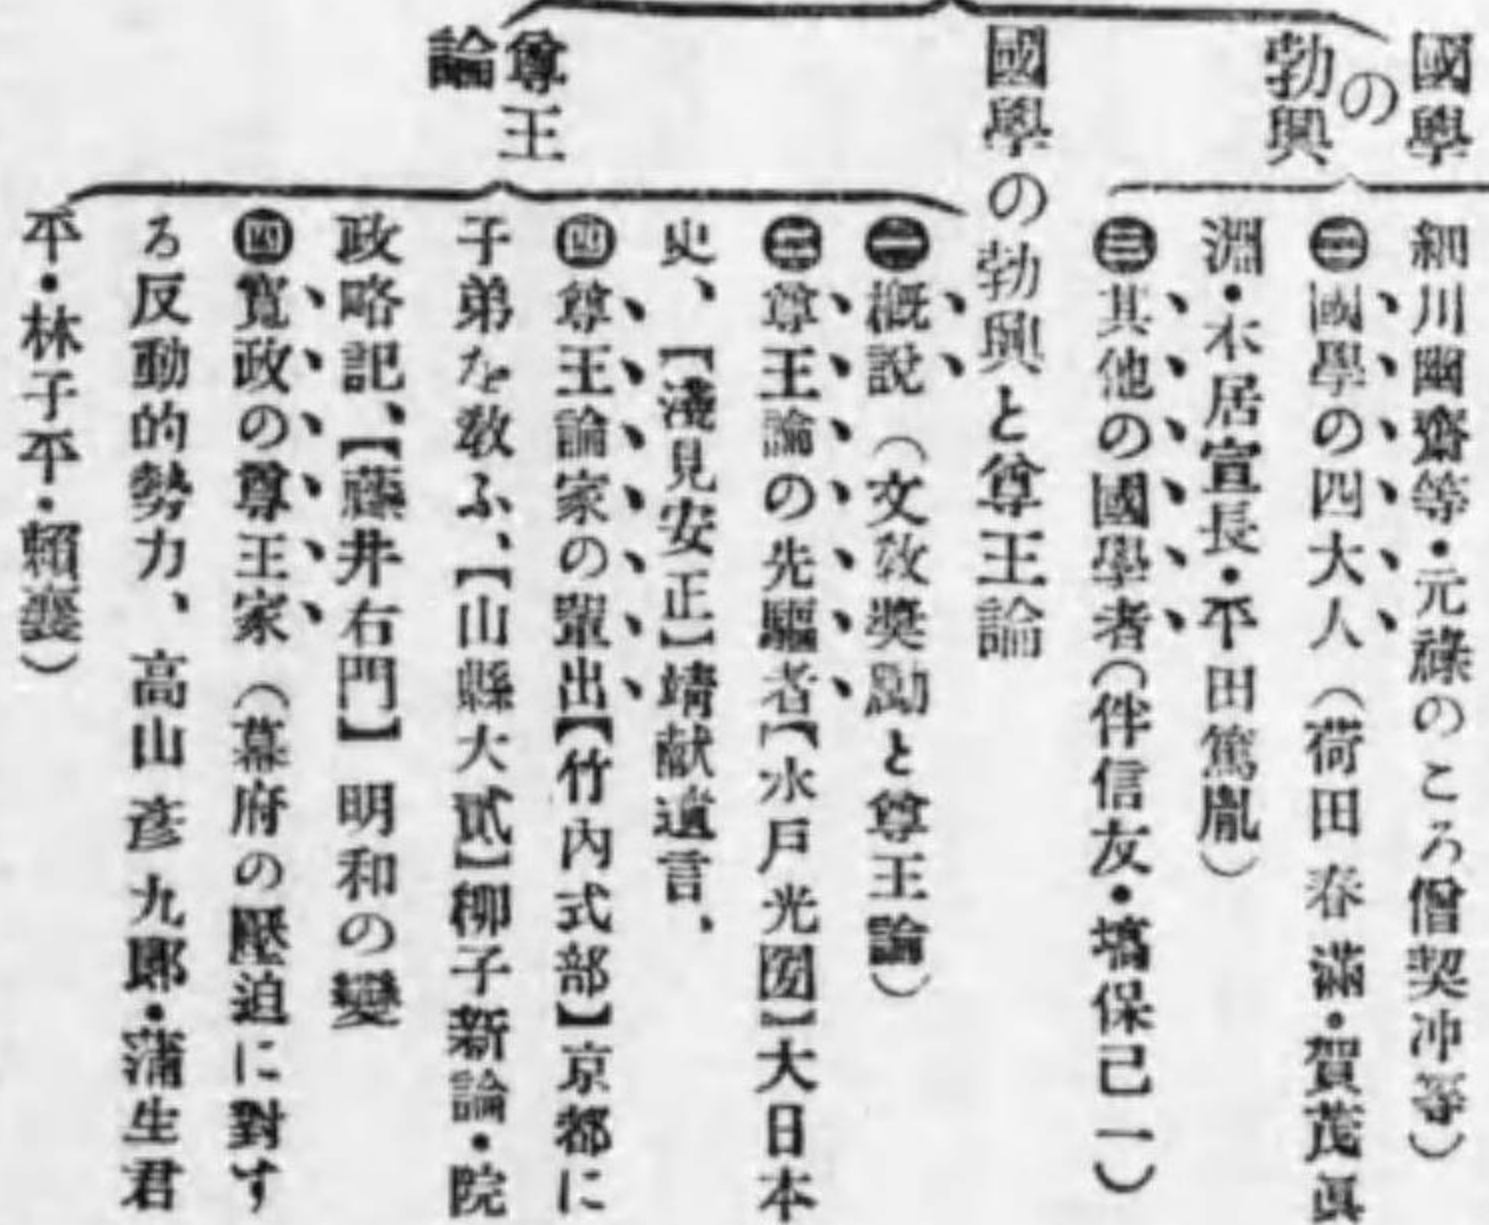 國學
の
勃興
細川幽齋等・元祿のころ僧契冲等）
㊁國學の四大人（荷田春滿・賀茂眞
淵・本居宣長・平田篤胤）
㊂其他の國學者（伴信友・塙保己一）
國學の勃興と尊王論
尊王
論
㊀概說（文敎奬勵と尊王論）
㊁尊王論の先驅者【水戶光圀】大日本
史、【淺見安正】靖献遺言、
㊃尊王論家の輩出【竹內式部】京都に
子弟を敎ふ、【山縣大貳】柳子新論・院
政略記、【藤井右門】明和の變
㊃寬政の尊王家（幕府の壓迫に對す
る反動的勢力、高山彥九郞・蒲生君
平・林子平・賴襄）